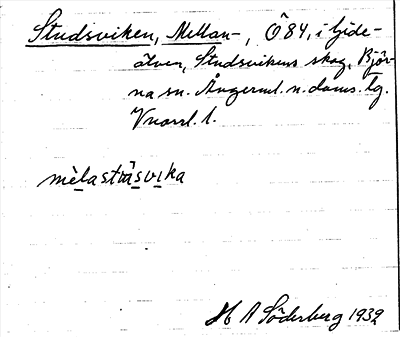 Studsviken, Mellan-, Ö 84, i Gide-
älven, Studsvikens skog, Björ-
na sn. Ångerml. n. doms. tg.
Vnorrl. l.
mèlastʉ̀svika
H A Söderberg 1932